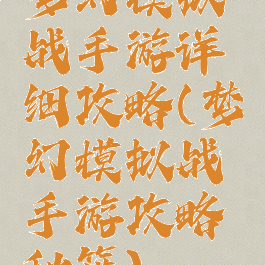 梦幻模拟
战手游详
细攻略(梦
幻模拟战
手游攻略
秘籍)